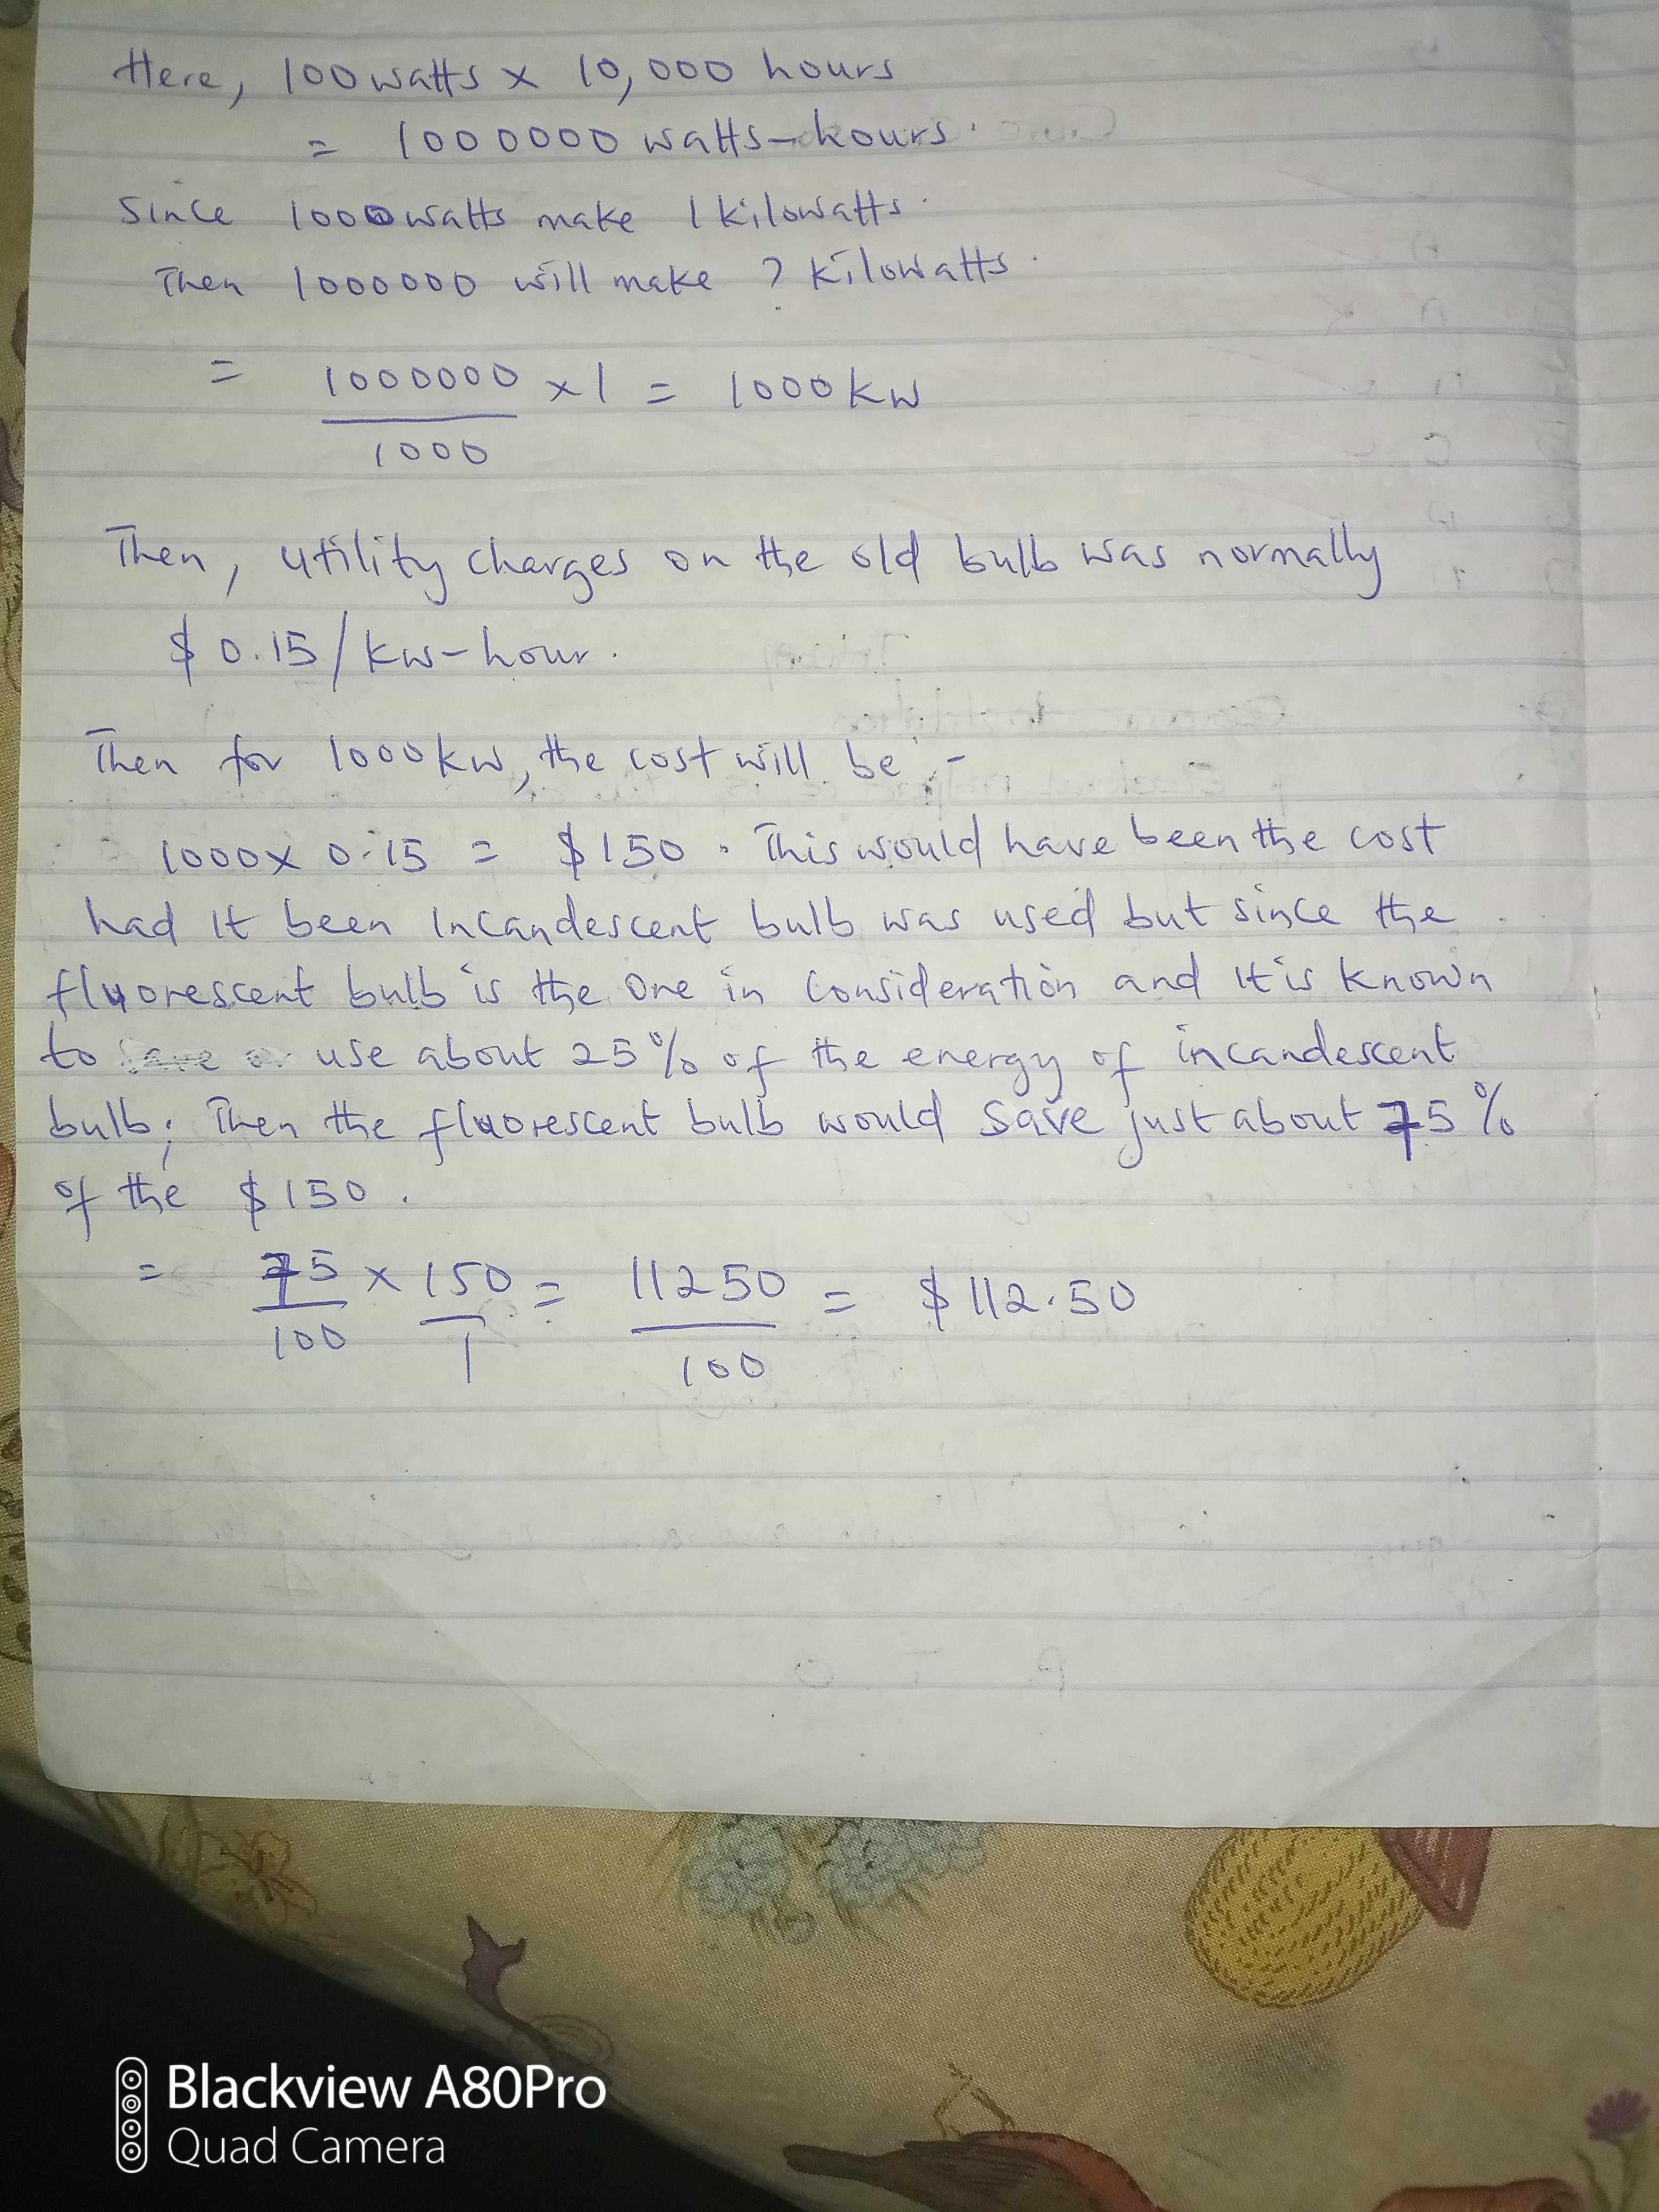 Here, 100 watts x 10,000 hours
= 1000000 watts-hours.
Since 1000 watts make 1 kilowatts.
Then 1000000 will make ? kilowatts.
= 1000000/1000 x 1 = 1000 kw
Then, utility charges on the old bulb was normally
$0.15/kw-hour.
Then for 1000kw, the cost will be :-
1000 x 0.15 = $150. This would have been the cost
had it been incandescent bulb was used but since the
fluorescent bulb is the one in consideration and it is known
to use about 25% of the energy of incandescent
bulb; Then the fluorescent bulb would save just about 75%
of the $150.
= 75/100 x 150/1 = 11250/100 = $112.50
Blackview A80Pro
Quad Camera